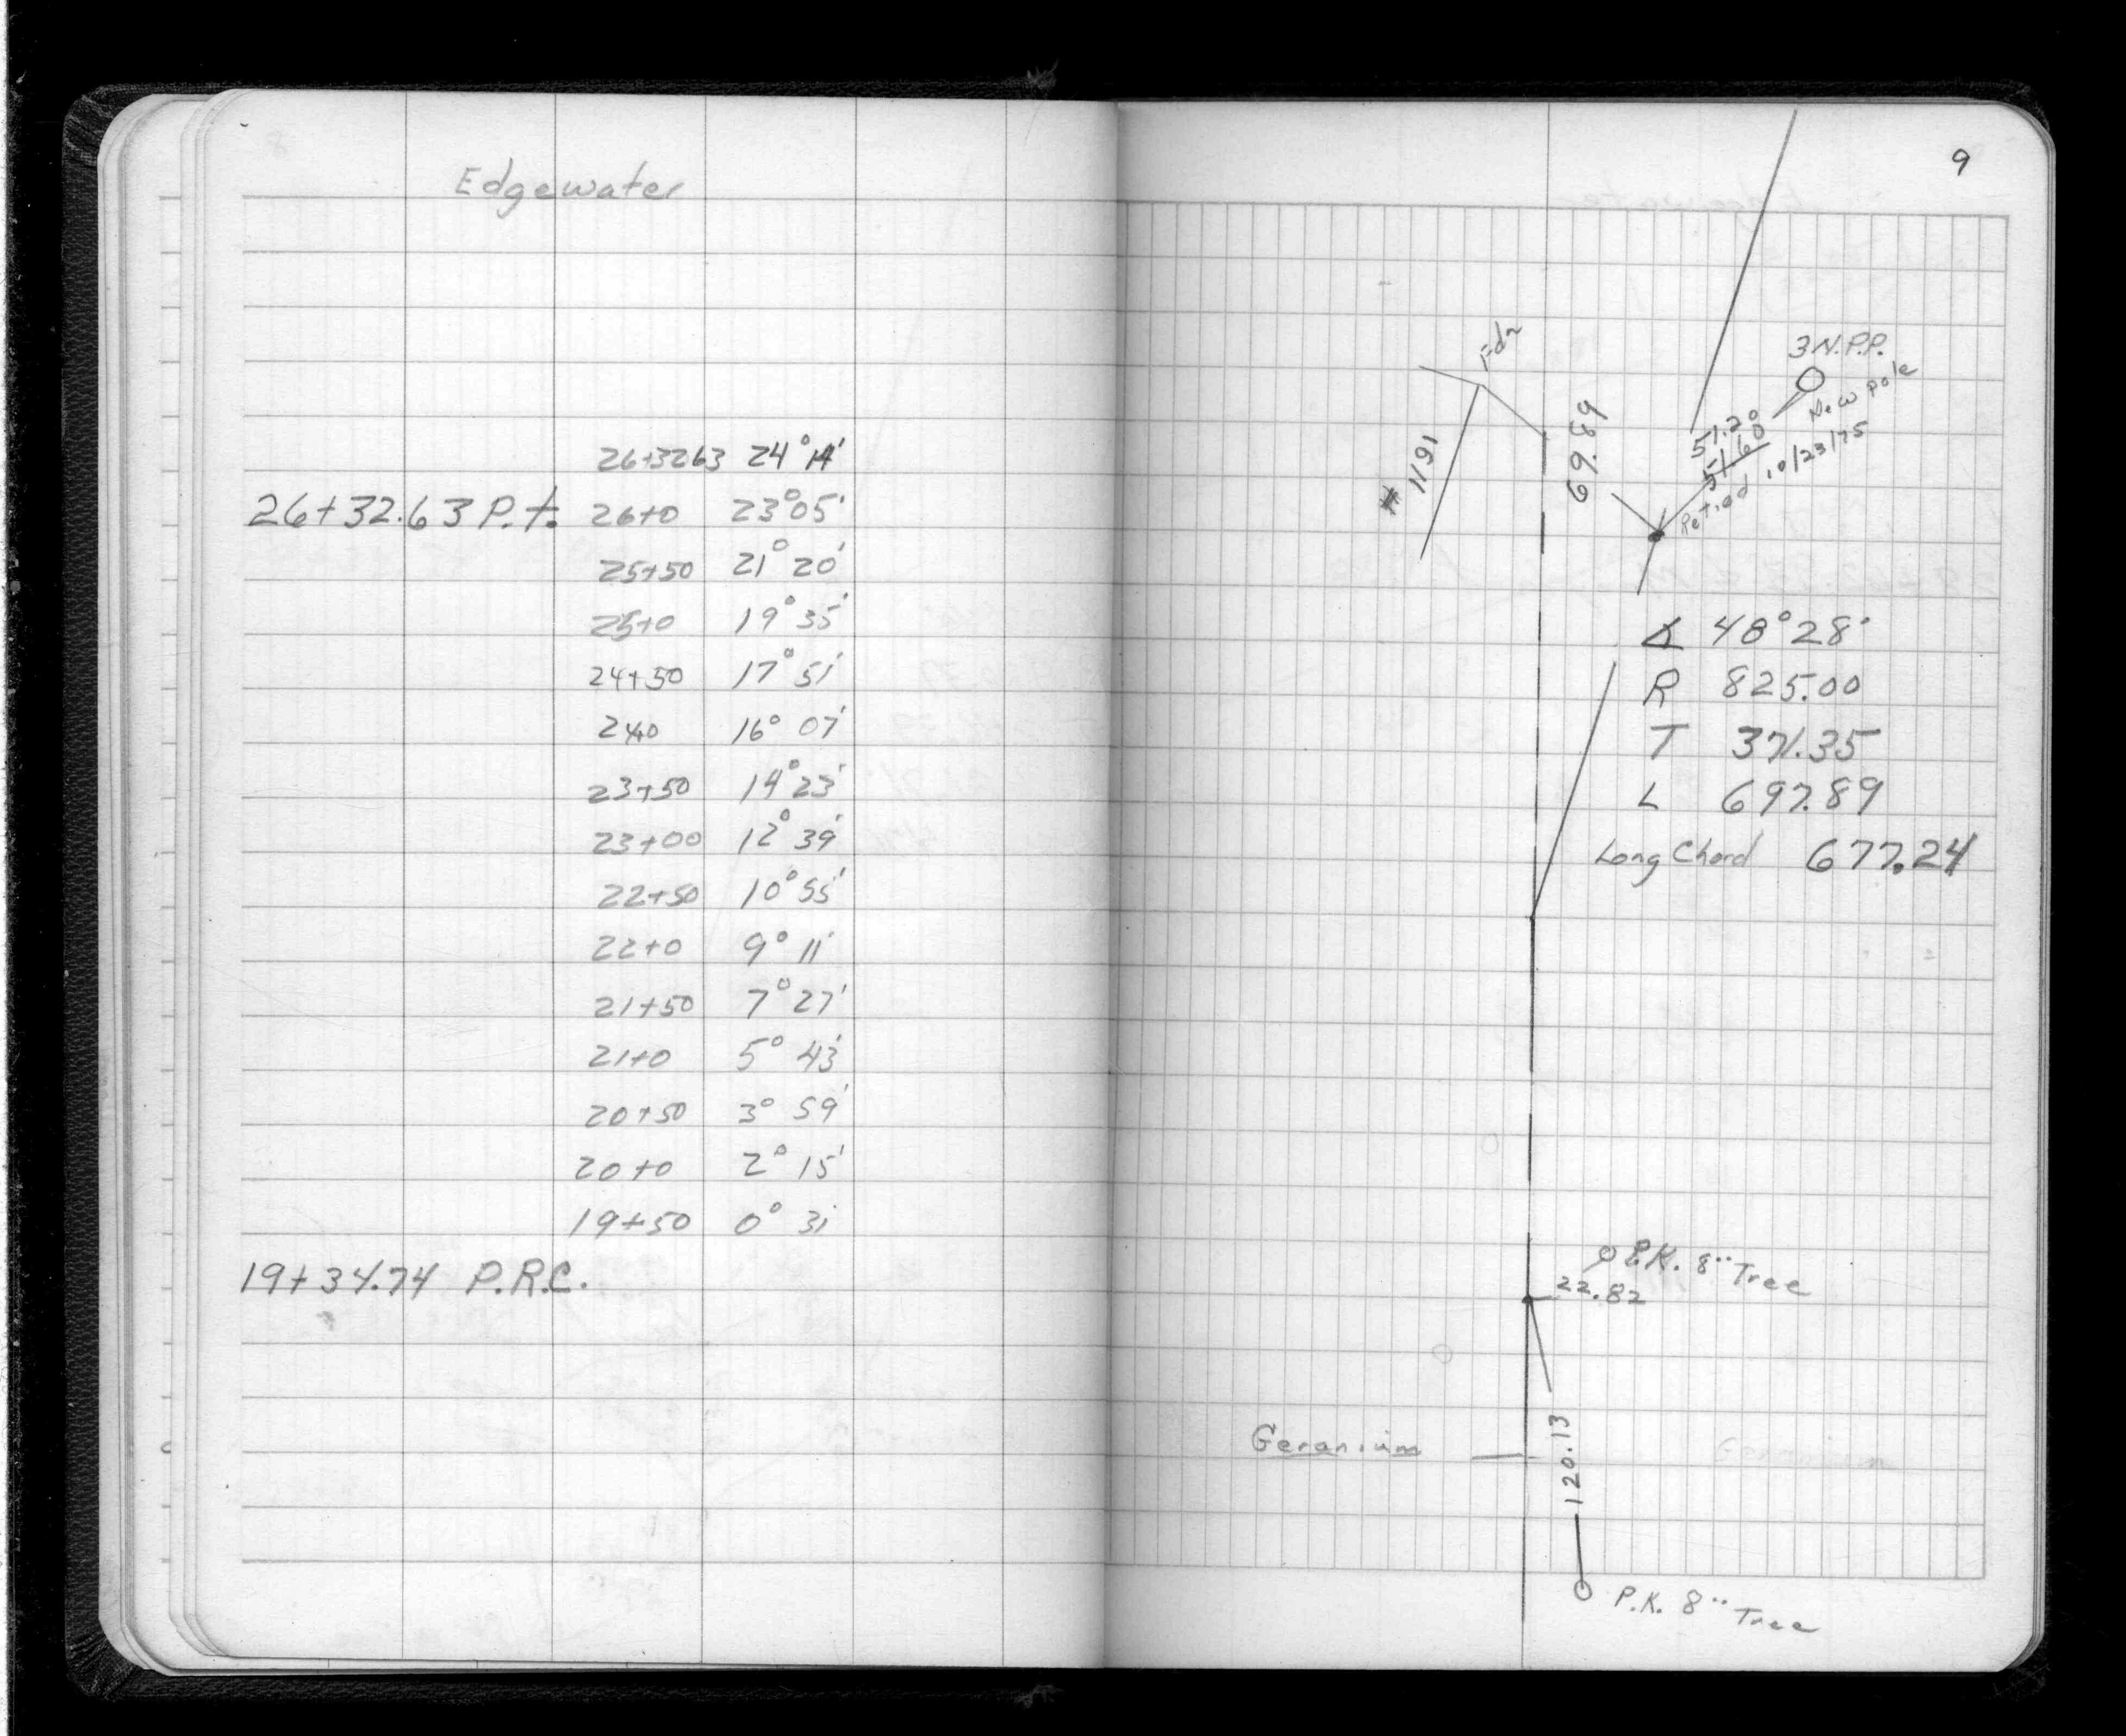 Edgewater
26+3263 24°14'
26+32.63 P.t. 26+0 23°05'
25+50 21°20'
25+0 19°35'
24+50 17°51'
24+0 16°07'
23+50 14°23'
23+00 12°39'
22+50 10°55'
22+0 9°11'
21+50 7°27'
21+0 5°43'
20+50 3°59'
20+0 2°15'
19+50 0°31'
19+34.74 P.R.C.
9
3 N.P.P.
New pole
51.20
51.60
Retied 10/23/75
69.89
Fdn
# 1191
∆ 48°28'
R 825.00
T 371.35
L 697.89
Long Chord 677.24
P.K. 8" Tree
22.82
Geranium
120.13
P.K. 8" Tree